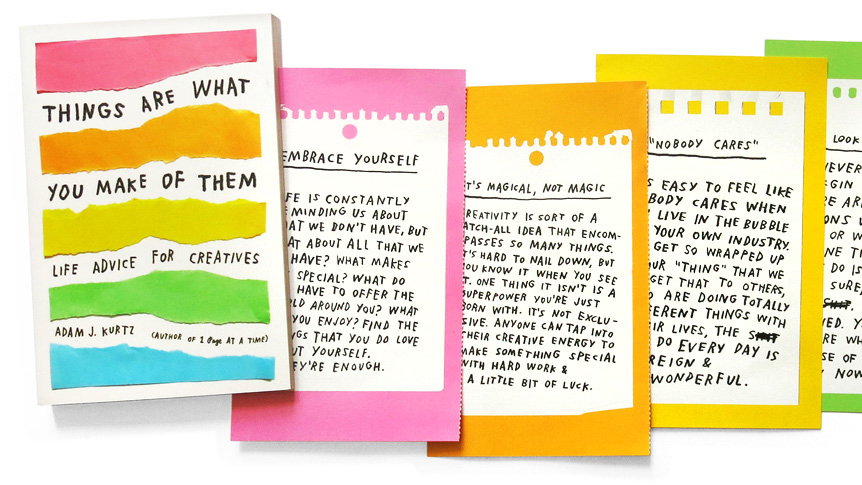 THINGS ARE WHAT
YOU MAKE OF THEM
LIFE ADVICE FOR CREATIVES
ADAM J. KURTZ (AUTHOR OF 1 Page AT A TIME)
EMBRACE YOURSELF
FE IS CONSTANTLY
MINDING US ABOUT
AT WE DON'T HAVE, BUT
AT ABOUT ALL THAT WE
HAVE? WHAT MAKES
SPECIAL? WHAT DO
HAVE TO OFFER THE
LD AROUND YOU? WHAT
YOU ENJOY? FIND THE
NGS THAT YOU DO LOVE
UT YOURSELF.
EY'RE ENOUGH.
T'S MAGICAL, NOT MAGIC
REATIVITY IS SORT OF A
ATCH-ALL IDEA THAT ENCOM-
PASSES SO MANY THINGS.
T'S HARD TO NAIL DOWN, BUT
OU KNOW IT WHEN YOU SEE
T. ONE THING IT ISN'T IS A
SUPERPOWER YOU'RE JUST
BORN WITH. IT'S NOT EXCLU-
SIVE. ANYONE CAN TAP INTO
THEIR CREATIVE ENERGY TO
MAKE SOMETHING SPECIAL
WITH HARD WORK &
A LITTLE BIT OF LUCK.
"NOBODY CARES"
S EASY TO FEEL LIKE
BODY CARES WHEN
LIVE IN THE BUBBLE
YOUR OWN INDUSTRY.
GET SO WRAPPED UP
UR "THING" THAT WE
GET THAT TO OTHERS,
O ARE DOING TOTALLY
FERENT THINGS WITH
IR LIVES, THE
DO EVERY DAY IS
REIGN &
WONDERFUL.
LOOK
NEVER
GIN
RE AR
ONS
OR W
E TH
DO IS
SURE
ED. Y
RE WH
SE OF
NOW